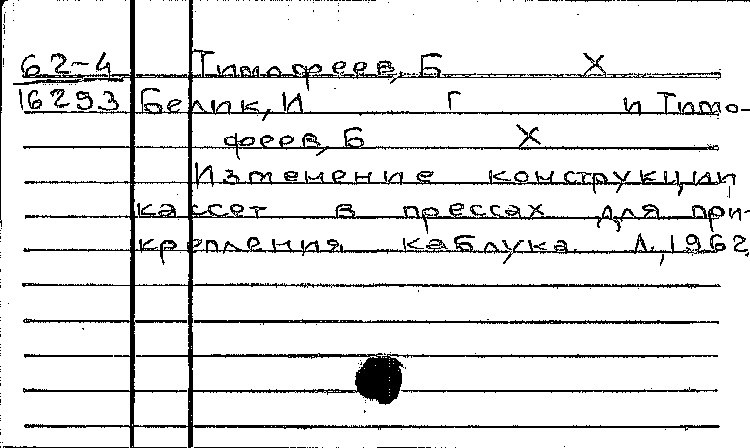 62-4 Тимофеев, Б Х
16293 Белик, И Г и Тимо-
феев, Б Х
Изменение конструкции
кассет в прессах для при-
крепления каблука. Л., 1962.